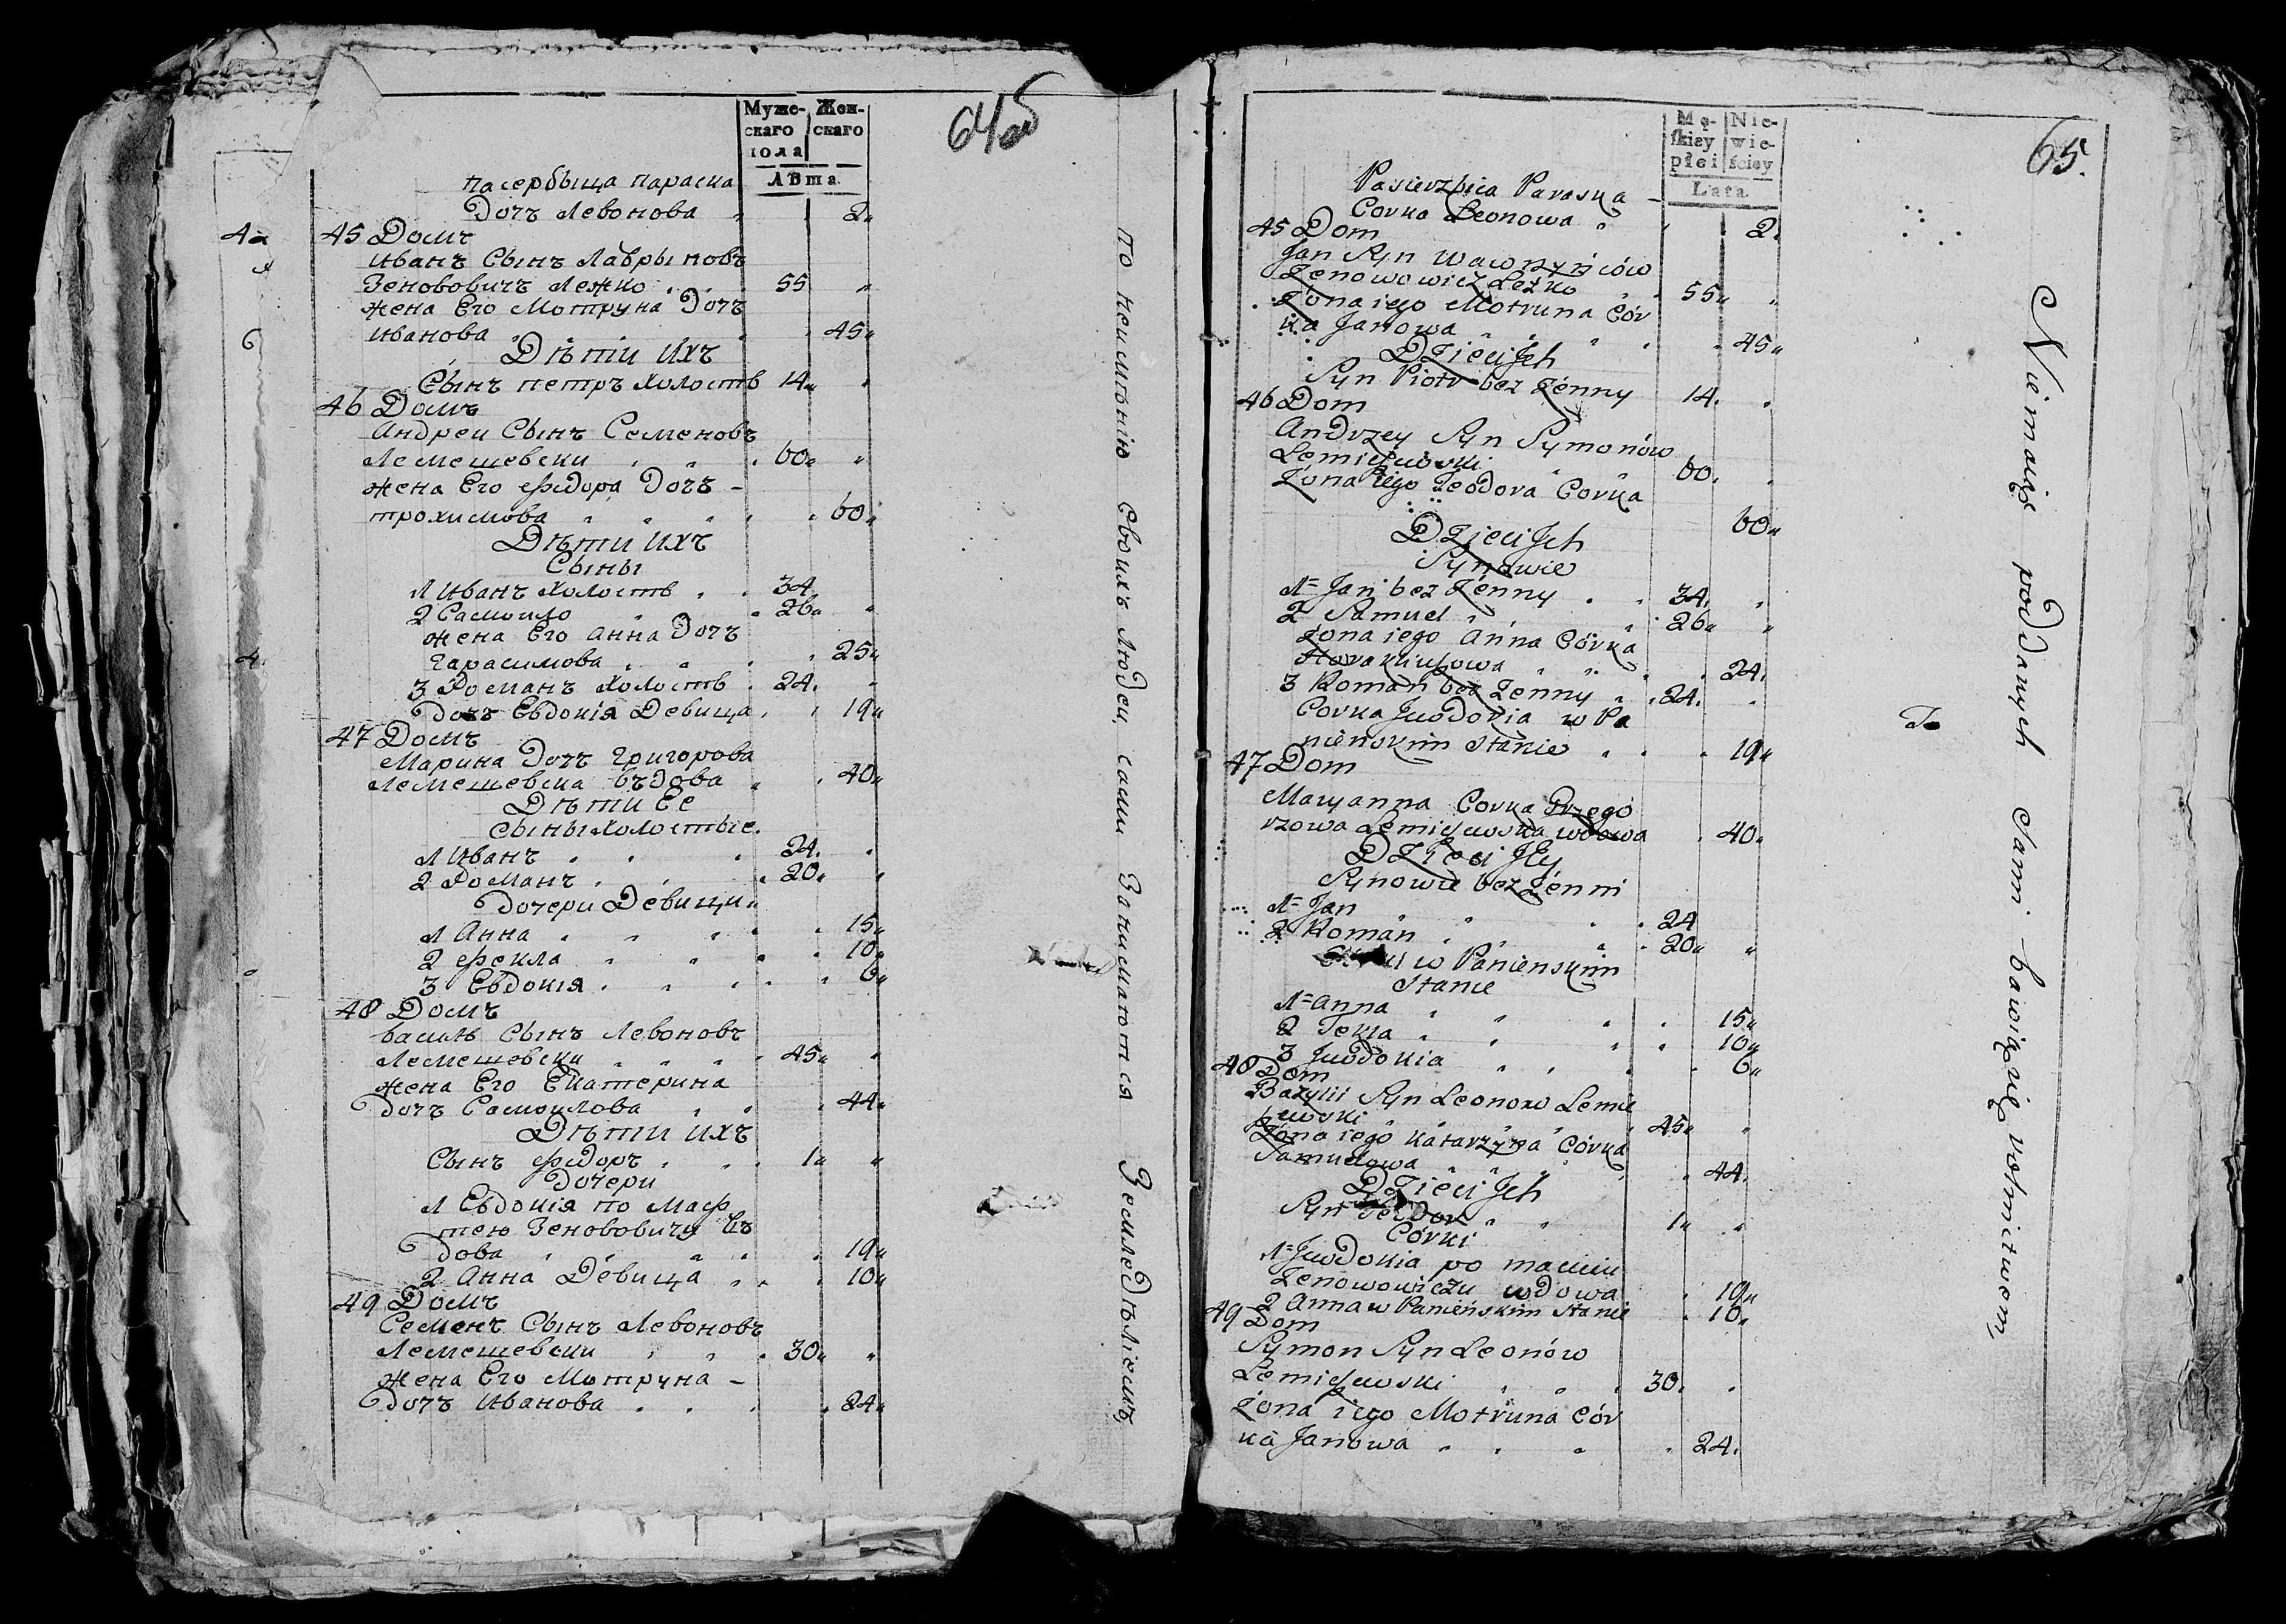 Муже-
скаго
пола
Жен-
скаго
Лѣта
64об
пасербыца параска
Дочъ Левонова 2
45 Домъ
Иванъ Сынъ Лаврыновъ
Зенововичъ Лежко 55
жена Его Мотруна Дочъ
Иванова 45
Дѣти ихъ
Сынъ петръ холостъ 14
46 Домъ
Андреи Сынъ Семеновъ
Лемешевски 60
жена Его Федора Дочъ -
трохимова 60
Дѣти ихъ
Сыны
1 Иванъ холостъ 34
2 Самоило 26
жена Его Анна Дочъ
Гарасимова 25
3 Романъ холостъ 24
дочъ Евдокія Девица 19
47 Домъ
Марина дочъ Григорова
Лемешевска въдова 40
Дѣти Ее
сыны холостые
1 Иванъ 24
2 Романъ 20
дочери Девицы
1 Анна 15
2 Фекла 10
3 Евдокія 6
48 Домъ
василь Сынъ Левоновъ
Лемешевски 45
жена Его Екатерина
дочъ Самоилова 44
Дѣти ихъ
Сынъ Федоръ 1
дочери
1 Евдокія по Маф
тею Зенововичу въ
дова 19
2 Анна Девица 10
49 Домъ
Семенъ Сынъ Левоновъ
Лемешевски 30
жена Его Мотруна -
дочъ Иванова 24
по неименію своихъ людеи, сами занимаются земледѣліемъ
Mę-
skiey
płci
Nie-
wie-
ściey
Lata
65.
Pasierzbica Paraska -
Corka Leonowa 2
45 Dom
Jan Syn Wawrzyńców
Zenowowicz Leżko 55
Żona iego Motruna Cór
ka Janowa 45
Dzieci Jch
Syn Piotr bez Żenny 14
46 Dom
Andrzey Syn Symonów
Lemieszewski 60
Żona iego Teodora Corka
60
Dzieci Jch
Synowie
1 Jan bez Żenny 34
2 Samuel 26
Żona iego Anna Córka
24
3 Roman bez Żenny 24
Corka Jwdokia w Pa
nieńskim stanie 19
47 Dom
Maryanna Corka Grzego
rzowa Lemieszewska wdowa 40
Dzieci Jey
Synowie bez Żenni
1 Jan 24
2 Roman 20
w Panienskim
Stanie
1 Anna 15
2 Tekla 10
3 Jwdokia 6
48 Dom
Bazylii Syn Leonow Lemie
szewski 45
Żona iego Katarzyna Córka
Samuelowa 44
Dzieci Jch
Syn Teodor 1
Córki
1 Jwdokia po
Zenowowiczu wdowa 19
2 Anna w Panieńskim stanie 10
49 Dom
Symon Syn Leonów
Lemieszewski 30
Żona iego Motruna Cór
ka Janowa 24
Niemaiąc poddanych Sami bawią się rolnictwem